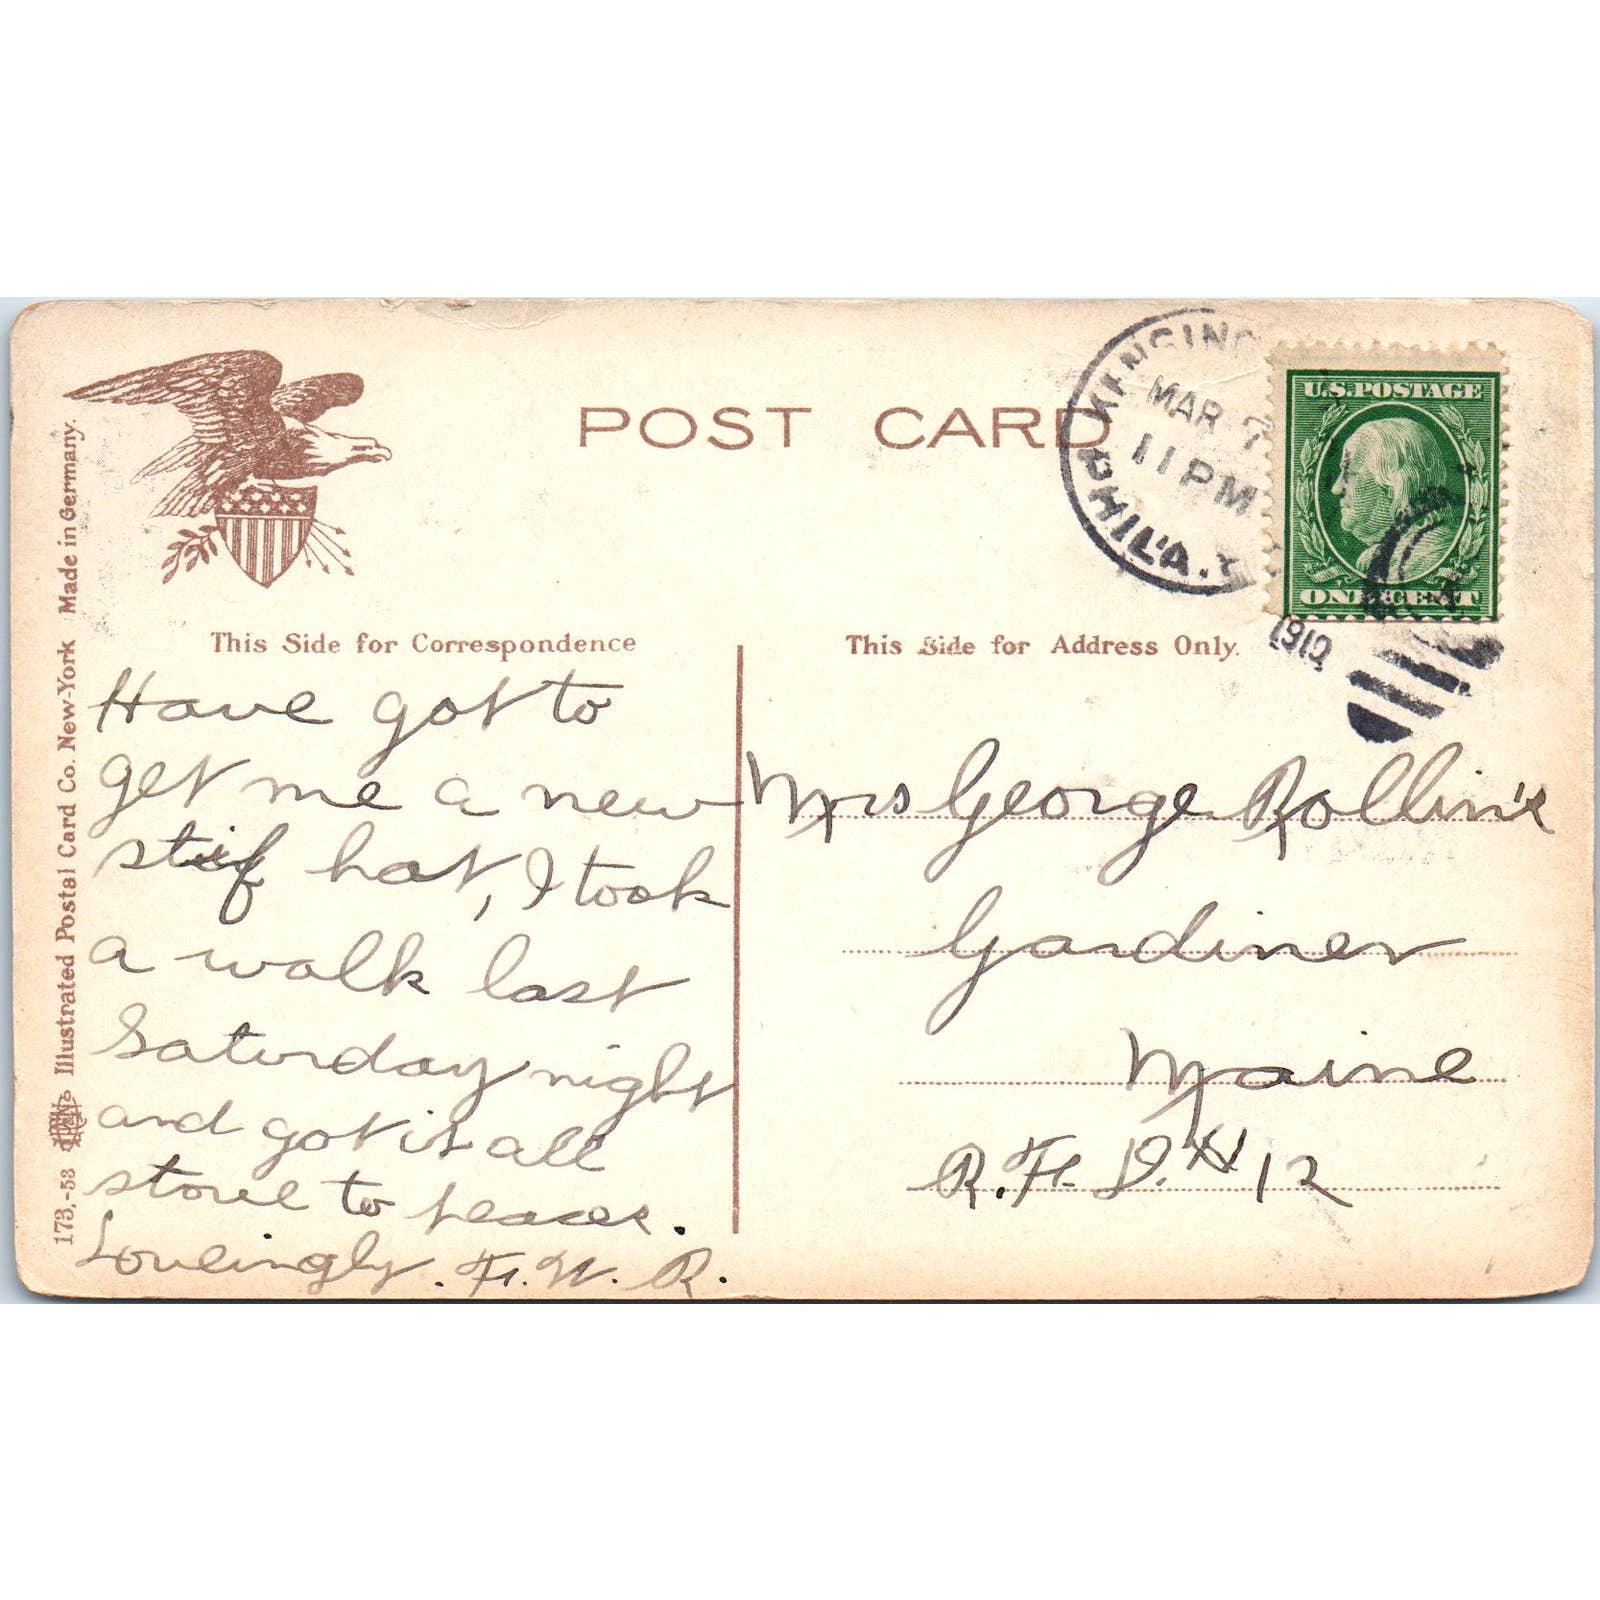 POST CARD
KENSING
MAR 7
11 PM
PHIL'A.
1910
U.S. POSTAGE
ONE CENT
This Side for Correspondence
This Side for Address Only.
Have got to
get me a new
stif hat, I took
a walk last
Saturday night
and got it all
stove to peaces.
Loveingly. F. W. R.
Mrs George Rollin's
Gardiner
Maine
R. F. D. N 12
173.-53 Illustrated Postal Card Co. New-York Made in Germany.